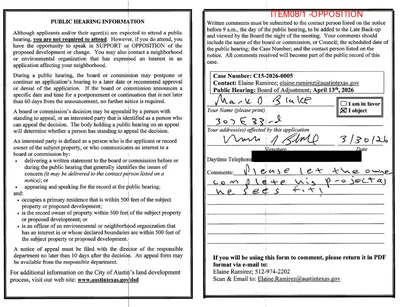 PUBLIC HEARING INFORMATION
Although applicants and/or their agent(s) are expected to attend a public
hearing, you are not required to attend. However, if you do attend, you
have the opportunity to speak in SUPPORT or OPPOSITION of the
proposed development or change. You may also contact a neighborhood
or environmental organization that has expressed an interest in an
application affecting your neighborhood.
During a public hearing, the board or commission may postpone or
continue an application's hearing to a later date or recommend approval
or denial of the application. If the board or commission announces a
specific date and time for a postponement or continuation that is not later
than 60 days from the announcement, no further notice is required.
A board or commission's decision may be appealed by a person with
standing to appeal, or an interested party that is identified as a person who
can appeal the decision. The body holding a public hearing on an appeal
will determine whether a person has standing to appeal the decision.
An interested party is defined as a person who is the applicant or record
owner of the subject property, or who communicates an interest to a
board or commission by:
• delivering a written statement to the board or commission before or
during the public hearing that generally identifies the issues of
concern (it may be delivered to the contact person listed on a
notice); or
• appearing and speaking for the record at the public hearing;
and:
• occupies a primary residence that is within 500 feet of the subject
property or proposed development;
• is the record owner of property within 500 feet of the subject property
or proposed development; or
• is an officer of an environmental or neighborhood organization that
has an interest in or whose declared boundaries are within 500 feet of
the subject property or proposed development.
A notice of appeal must be filed with the director of the responsible
department no later than 10 days after the decision. An appeal form may
be available from the responsible department.
For additional information on the City of Austin's land development
process, visit our web site: www.austintexas.gov/dsd
ITEM08/1 -OPPOSITION
Written comments must be submitted to the contact person listed on the notice
before 9 a.m., the day of the public hearing, to be added to the Late Back-up
and viewed by the Board the night of the meeting. Your comments should
include the name of the board or commission, or Council; the scheduled date of
the public hearing; the Case Number; and the contact person listed on the
notice. All comments received will become part of the public record of this
case.
Case Number: C15-2026-0005
Contact: Elaine Ramirez; elaine.ramirez@austintexas.gov
Public Hearing: Board of Adjustment; April 13th, 2026
Mark D Blake
Your Name (please print)
I am in favor
I object
307 E 33rd
Your address(es) affected by this application
3/30/26
Signature Date
Daytime Telephone:
Comments: Please let the owner
complete his project as
he sees fit!
If you will be using this form to comment, please return it in PDF
format via e-mail to:
Elaine Ramirez; 512-974-2202
Scan & Email to: Elaine.Ramirez@austintexas.gov